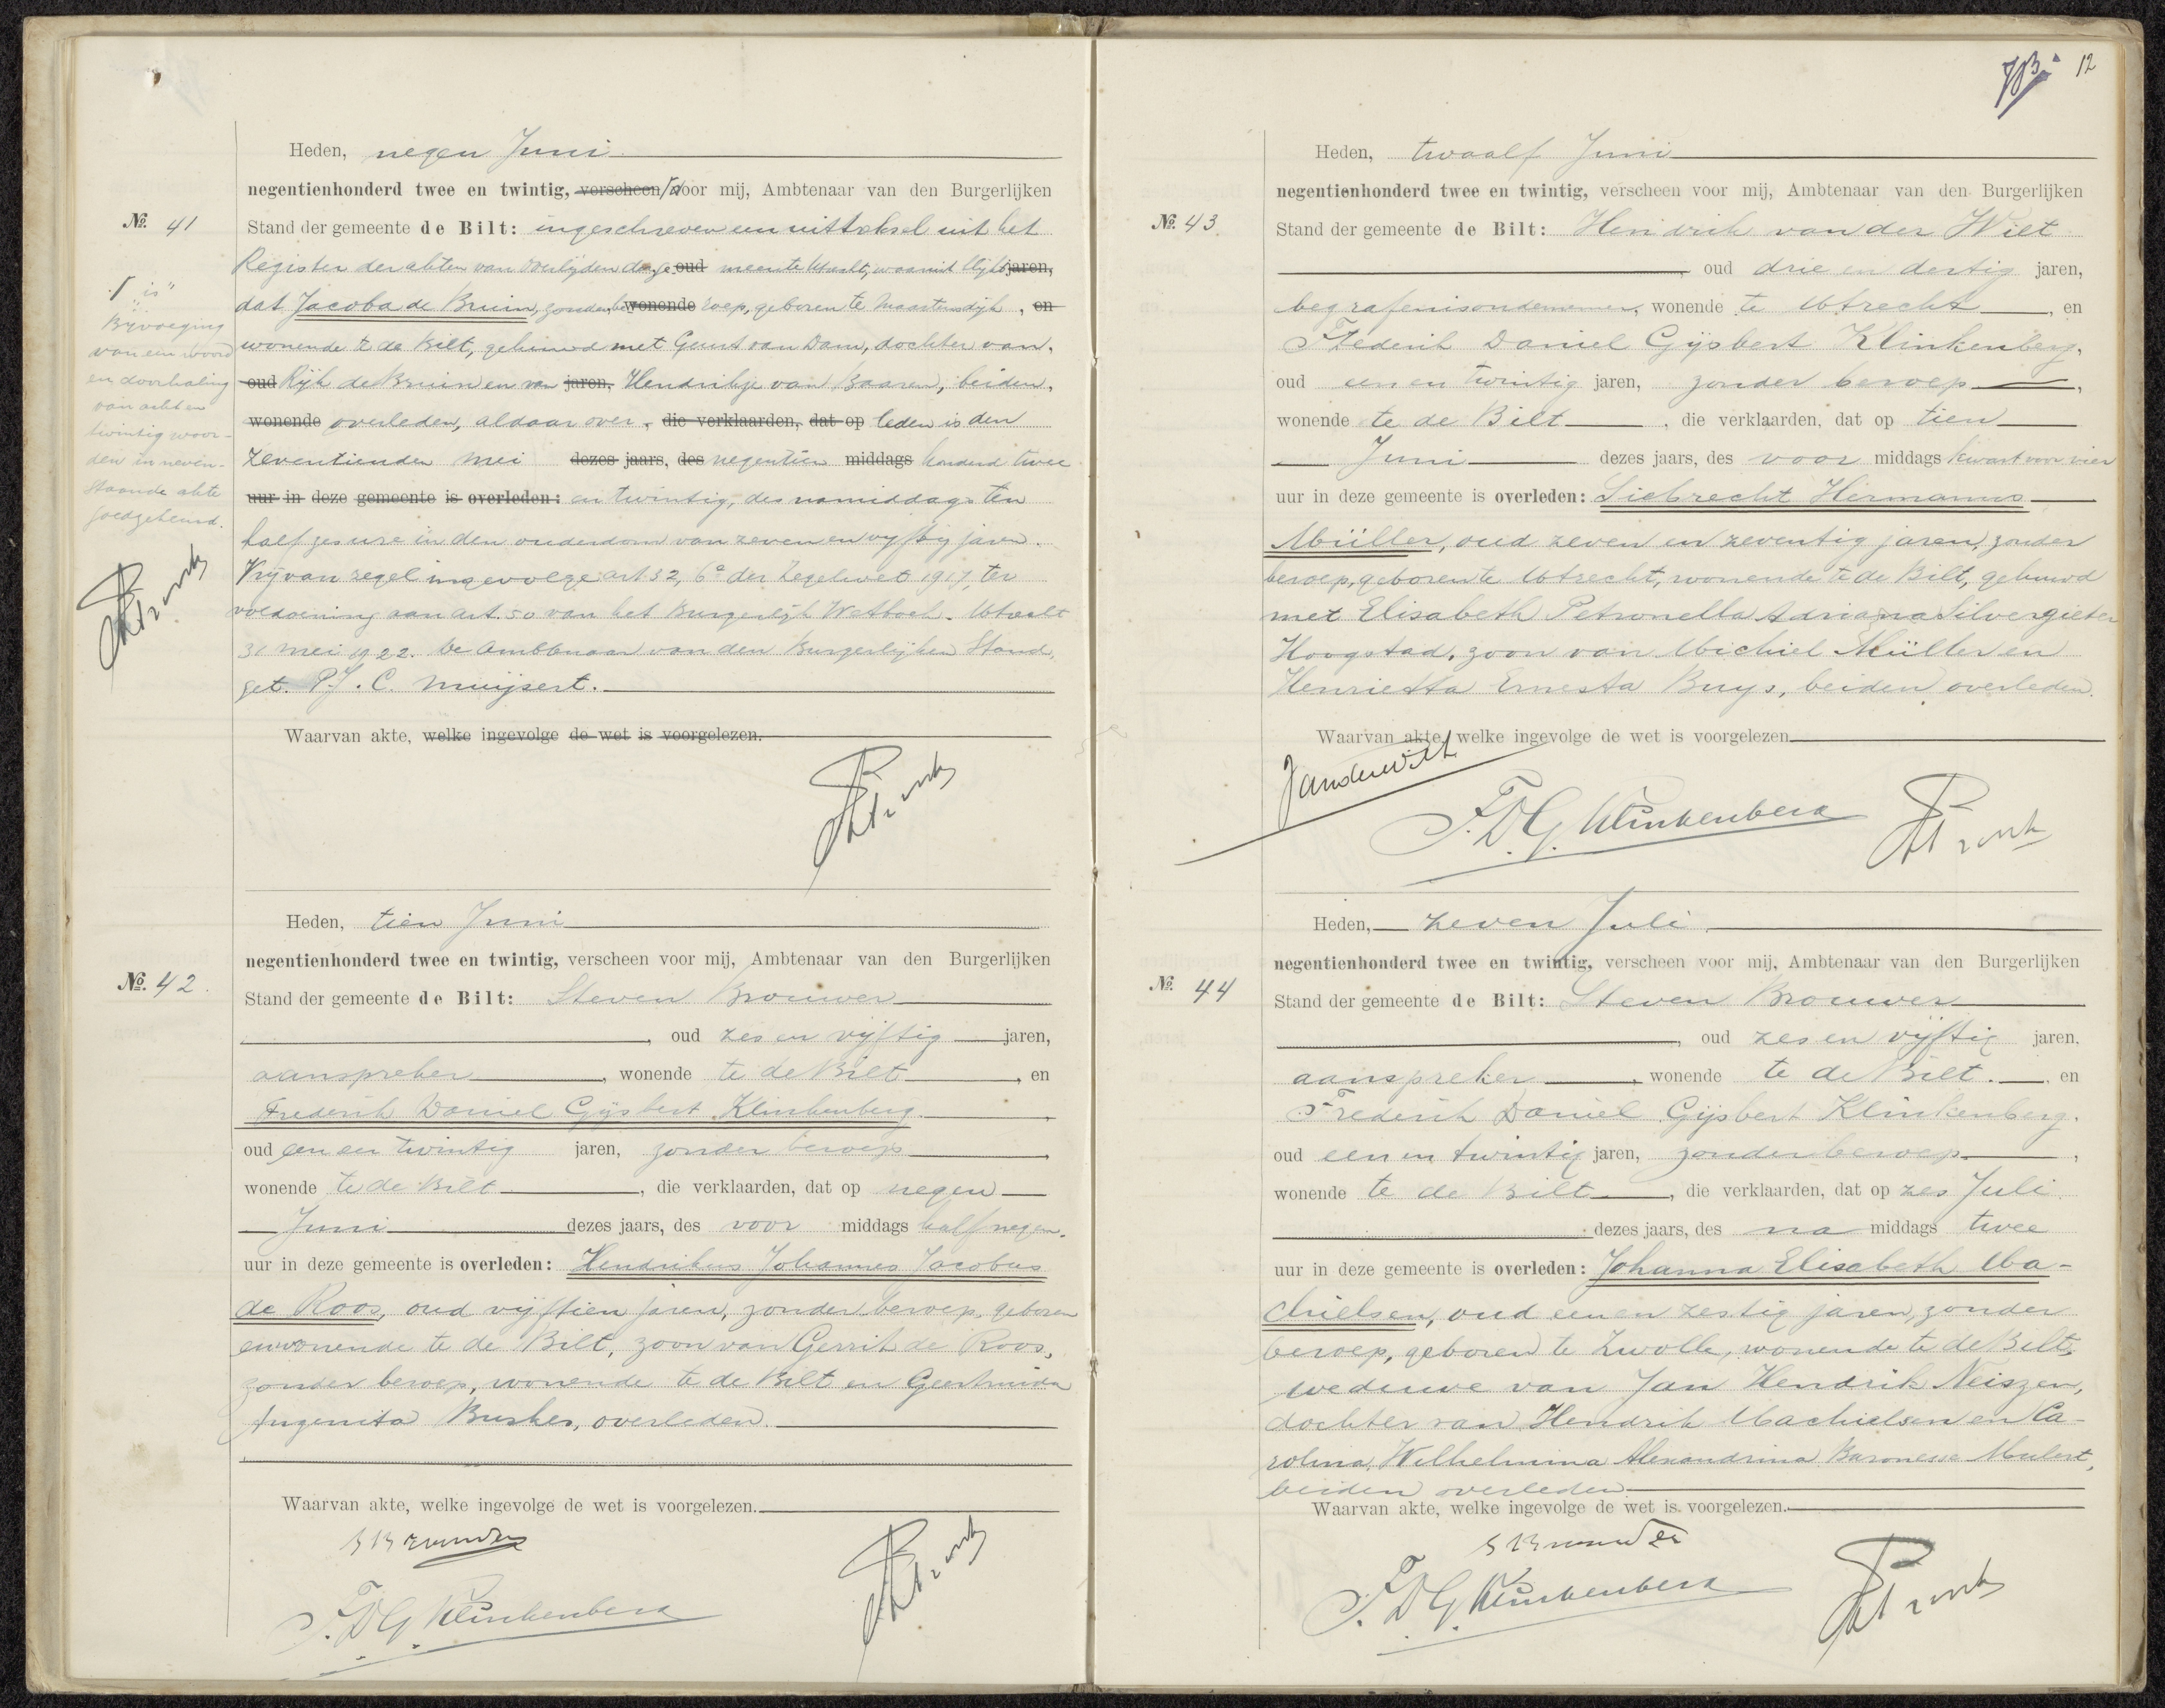 Heden, negen Juni
negentienhonderd twee en twintig, verscheen door mij, Ambtenaar van den Burgerlijken
No. 41
Stand der gemeente de Bilt: ingeschreven een uittreksel uit het
Register der akten van overlijden der ge oud meente Utrecht, waaruit blijkt jaren,
dat Jacoba de Bruin, zonder be wonende roep, geboren te Maartensdijk, en
wonende te de Bilt, gehuwd met Geurt van Dam, dochter van
oud Rijk de Bruin en van jaren, Hendrikje van Baaren, beiden,
wonende overleden, aldaar over, die verklaarden, dat op leden is den
zeventienden Mei dezes jaars, des negentien middags honderd twee
uur in deze gemeente is overleden: en twintig, des namiddags ten
half zes ure in den ouderdom van zeven en vijftig jaren.
Vrij van zegel ingevolge art 32, 6e der Zegelwet 1917, ter
voldoening aan art. 50 van het Burgerlijk Wetboek. Utrecht
31 Mei 1922. De Ambtenaar van den Burgerlijken Stand,
get. P.J.C. Muijsert.
Waarvan akte, welke ingevolge de wet is voorgelezen.
"is"
Bijvoeging
van een woord
en doorhaling
van acht en
twintig woor-
den in neven-
staande akte
goedgekeurd.
Heden, tien Juni
negentienhonderd twee en twintig, verscheen voor mij, Ambtenaar van den Burgerlijken
No. 42.
Stand der gemeente de Bilt: Steven Brouwer
, oud zes en vijftig jaren,
aanspreker, wonende te de Bilt, en
Frederik Daniel Gijsbert Klinkenberg.
oud een en twintig jaren, zonder beroep,
wonende te de Bilt, die verklaarden, dat op negen
Juni dezes jaars, des voor middags half negen.
uur in deze gemeente is overleden: Hendrikus Johannes Jacobus
de Roos, oud vijftien jaren, zonder beroep, geboren
en wonende te de Bilt, zoon van Gerrit de Roos,
zonder beroep, wonende te de Bilt en Geertruida
Ingenita Buskes, overleden.
Waarvan akte, welke ingevolge de wet is voorgelezen.
S Brouwer
F.D.G. Klinkenberg
12
Heden, twaalf Juni
negentienhonderd twee en twintig, verscheen voor mij, Ambtenaar van den Burgerlijken
No. 43.
Stand der gemeente de Bilt: Hendrik van der Wilt
, oud drie en dertig jaren,
begrafenisondernemer, wonende te Utrecht, en
Frederik Daniel Gijsbert Klinkenberg,
oud een en twintig jaren, zonder beroep,
wonende te de Bilt, die verklaarden, dat op tien
Juni dezes jaars, des voor middags kwart voor vier
uur in deze gemeente is overleden: Siebrecht Hermanus
Müller, oud zeven en zeventig jaren, zonder
beroep, geboren te Utrecht, wonende te de Bilt, gehuwd
met Elisabeth Petronella Adriana Silvergieter
Hoogstad, zoon van Michiel Müller en
Henrietta Ernesta Buys, beiden overleden.
Waarvan akte, welke ingevolge de wet is voorgelezen
Jvanderwilt
F.D.G. Klinkenberg
Heden, zeven Juli
negentienhonderd twee en twintig, verscheen voor mij, Ambtenaar van den Burgerlijken
No. 44
Stand der gemeente de Bilt: Steven Brouwer
, oud zes en vijftig jaren,
aanspreker, wonende te de Bilt. en
Frederik Daniel Gijsbert Klinkenberg,
oud een en twintig jaren, zonder beroep,
wonende te de Bilt, die verklaarden, dat op zes Juli
dezes jaars, des na middags twee
uur in deze gemeente is overleden: Johanna Elisabeth Ma-
chielsen, oud een en zestig jaren, zonder
beroep, geboren te Zwolle, wonende te de Bilt,
weduwe van Jan Hendrik Neiszen,
dochter van Hendrik Machielsen en Ca-
rolina Wilhelmina Alexandrina Baronesse Mulert,
beiden overleden
Waarvan akte, welke ingevolge de wet is voorgelezen.
S Brouwer
F.D.G. Klinkenberg